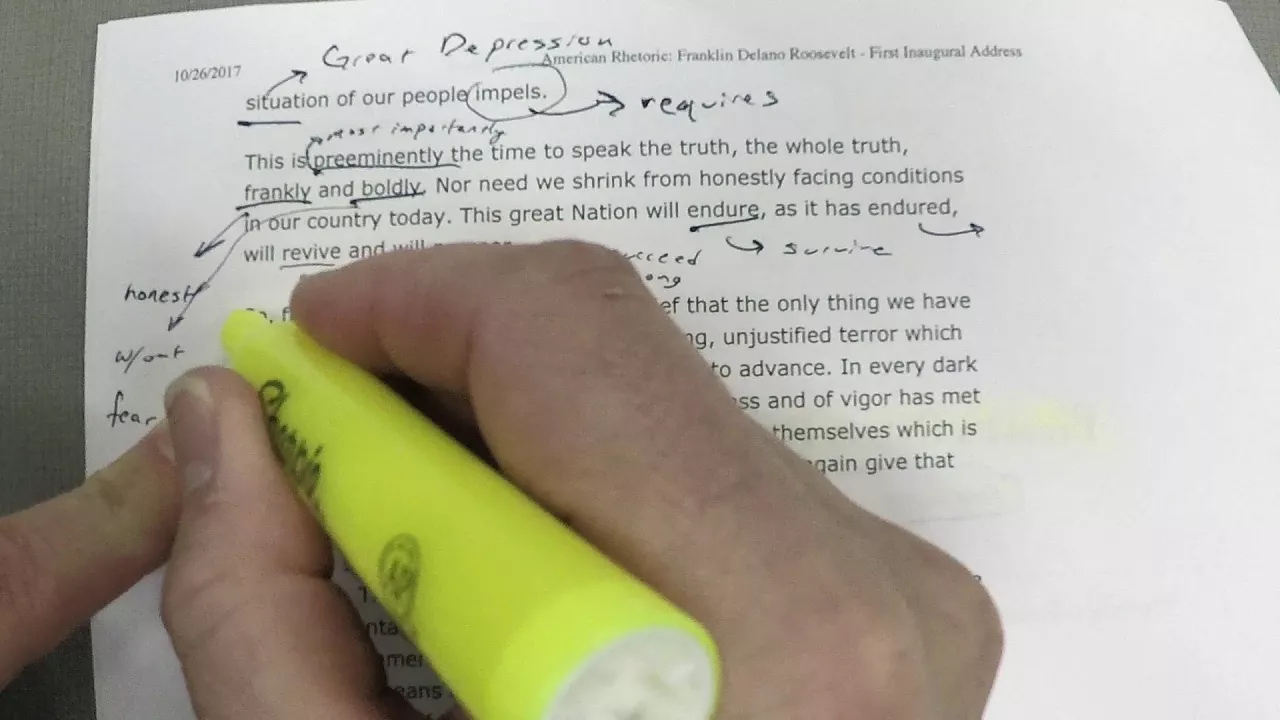 Great Depression
10/26/2017 American Rhetoric: Franklin Delano Roosevelt - First Inaugural Address
situation of our people impels. requires
most importantly
This is preeminently the time to speak the truth, the whole truth,
frankly and boldly. Nor need we shrink from honestly facing conditions
in our country today. This great Nation will endure, as it has endured,
will revive and will
survive
honestly
that the only thing we have
unjustified terror which
w/out
to advance. In every dark
and of vigor has met
fear
themselves which is
give that
Sharpie